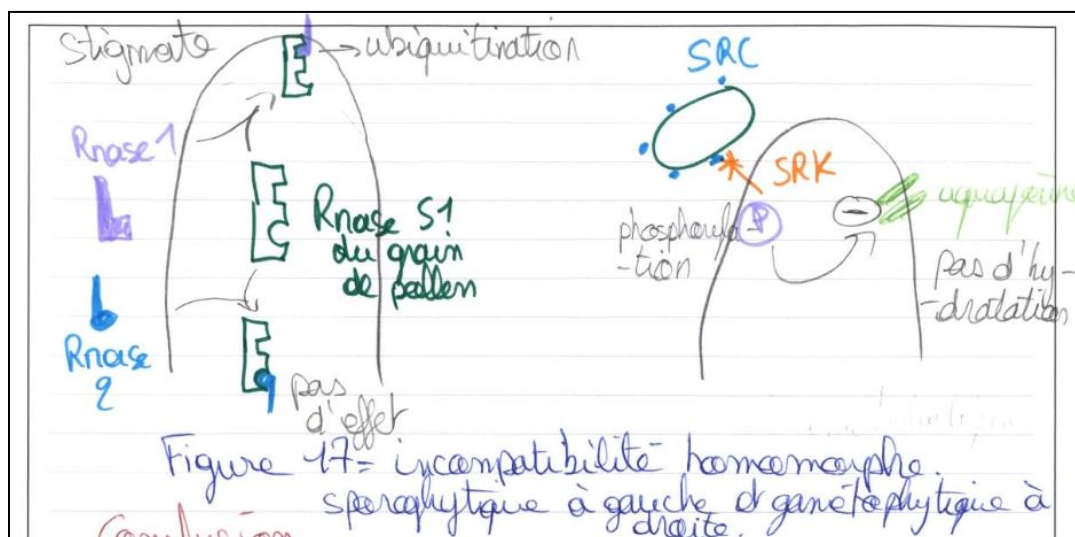 Stigmate
→ ubiquitination
Rnase 1
Rnase S1
du grain
de pollen
Rnase
2
pas
d'effet
SRC
SRK
phosphoryla
-tion
P
-
aquaporine
pas d'hy-
-dratation
Figure 17= incompatibilité homomorphe.
sporophytique à gauche et gamétophytique à
droite.
Conclusion